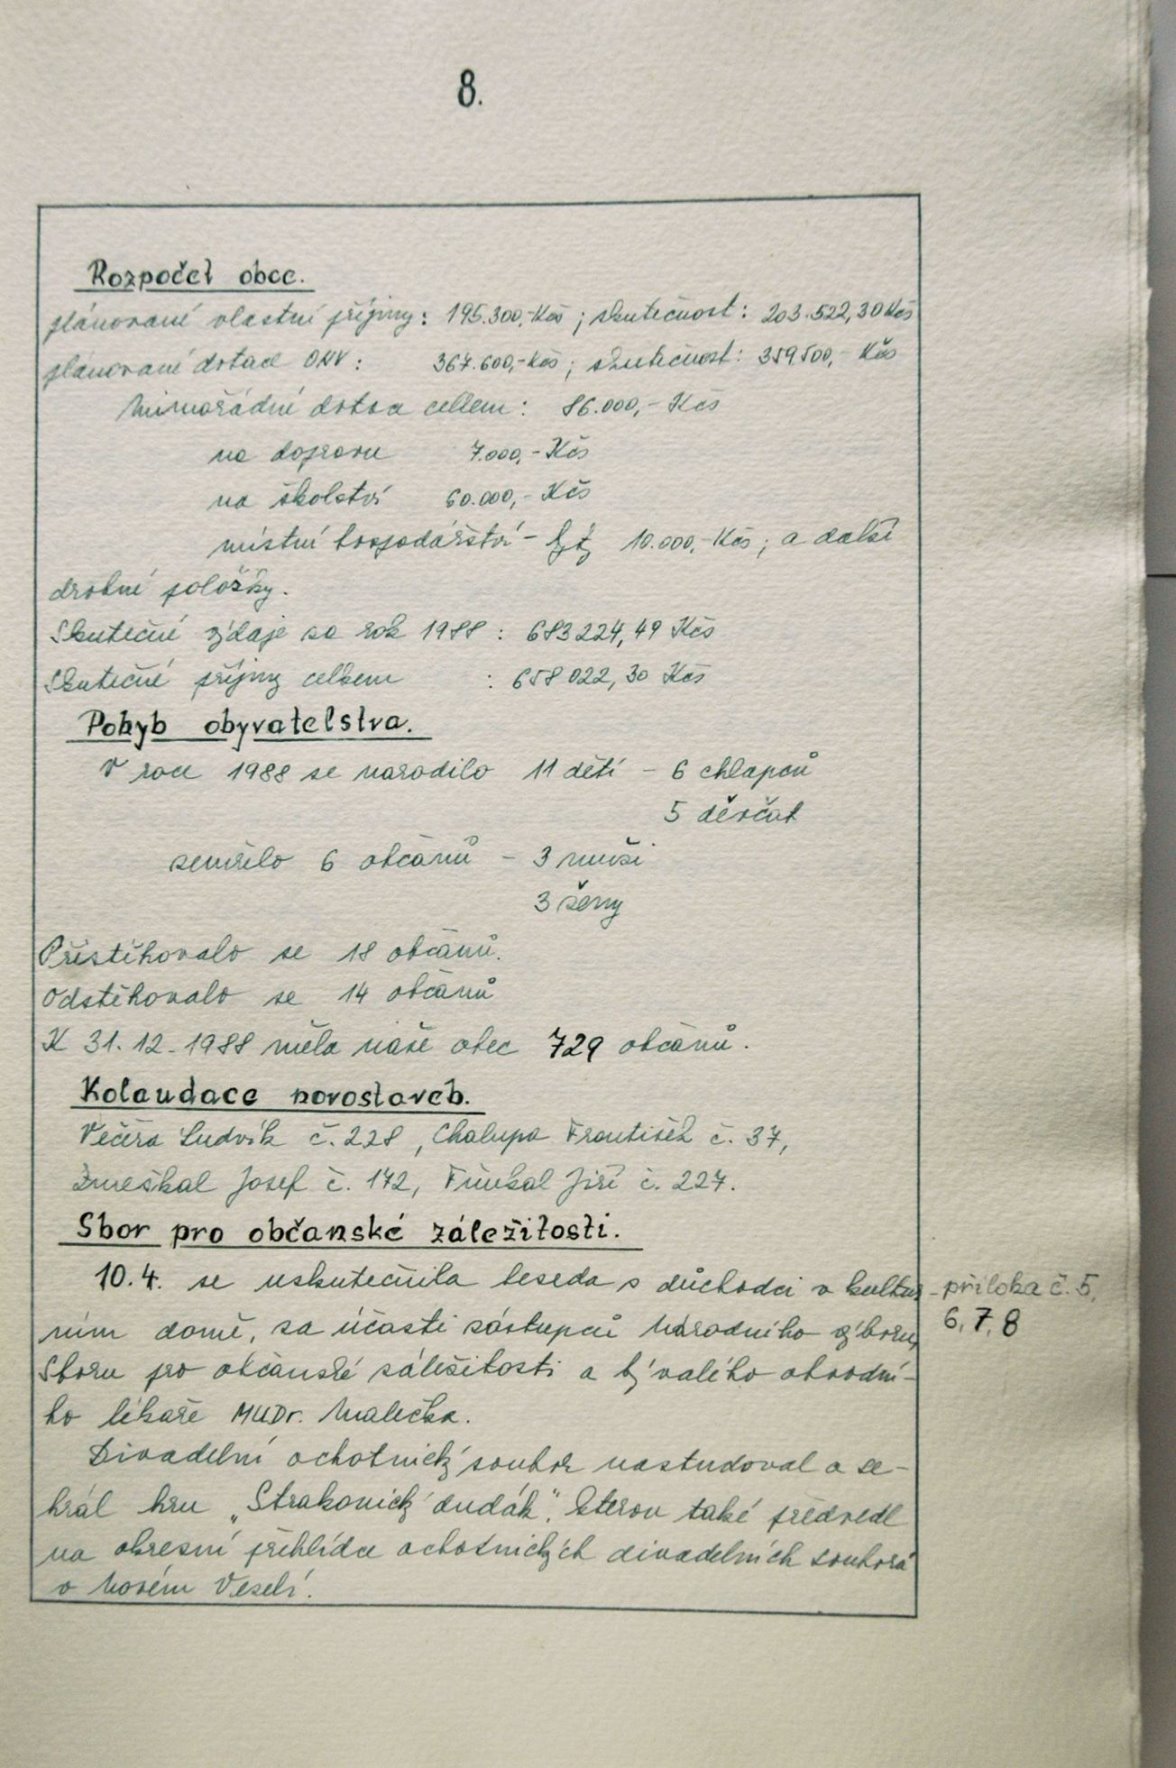 8.
Rozpočet obce.
plánované vlastní příjmy: 195.300,-Kčs ; skutečnost: 203.522,30 Kčs
plánované dotace ONV: 367.600,-Kčs ; skutečnost: 359500,- Kčs
Mimořádné dotace celkem: 86.000,- Kčs
na dopravu 7.000,- Kčs
na školství 60.000,- Kčs
místní hospodářství - byty 10.000,-Kčs ; a další
drobné položky.
Skutečné výdaje za rok 1988 : 683224,49 Kčs
Skutečné příjmy celkem : 658022,30 Kčs
Pohyb obyvatelstva.
V roce 1988 se narodilo 11 dětí - 6 chlapců
5 děvčat
zemřelo 6 občanů - 3 muži
3 ženy
Přistěhovalo se 18 občanů.
Odstěhovalo se 14 občanů
K 31.12.1988 měla naše obec 729 občanů.
Kolaudace novostaveb.
Večeřa Ludvík č. 228, Chalupa František č. 37,
Zmeškal Josef č. 172, Fůukal Jiří č. 227.
Sbor pro občanské záležitosti.
10.4. se uskutečnila beseda s důchodci v kultur- příloha č. 5,
ním domě, za účasti zástupců Národního výboru, 6,7,8
Sboru pro občanské záležitosti a bývalého obvodní-
ho lékaře MUDr. Malečka.
Divadelní ochotnický soubor nastudoval a se-
hrál hru „Strakonický dudák". Kterou také předvedl
na okresní přehlídce ochotnických divadelních souborů
v Novém Veselí.